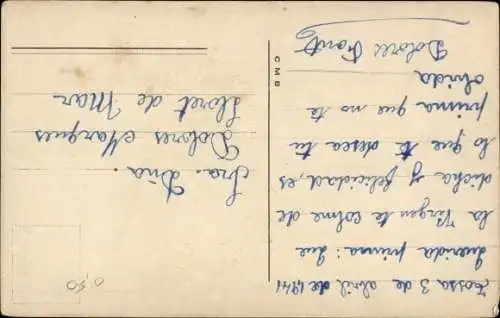 Tossa 3 de abril de 1941
Querida prima: Que
la Virgen te colme de
dicha y felicidad, es
lo que te desea tu
prima que no te
olvida
Dolores
C M B
Sra. Dña.
Dolores Marques
Lloret de Mar
0,50